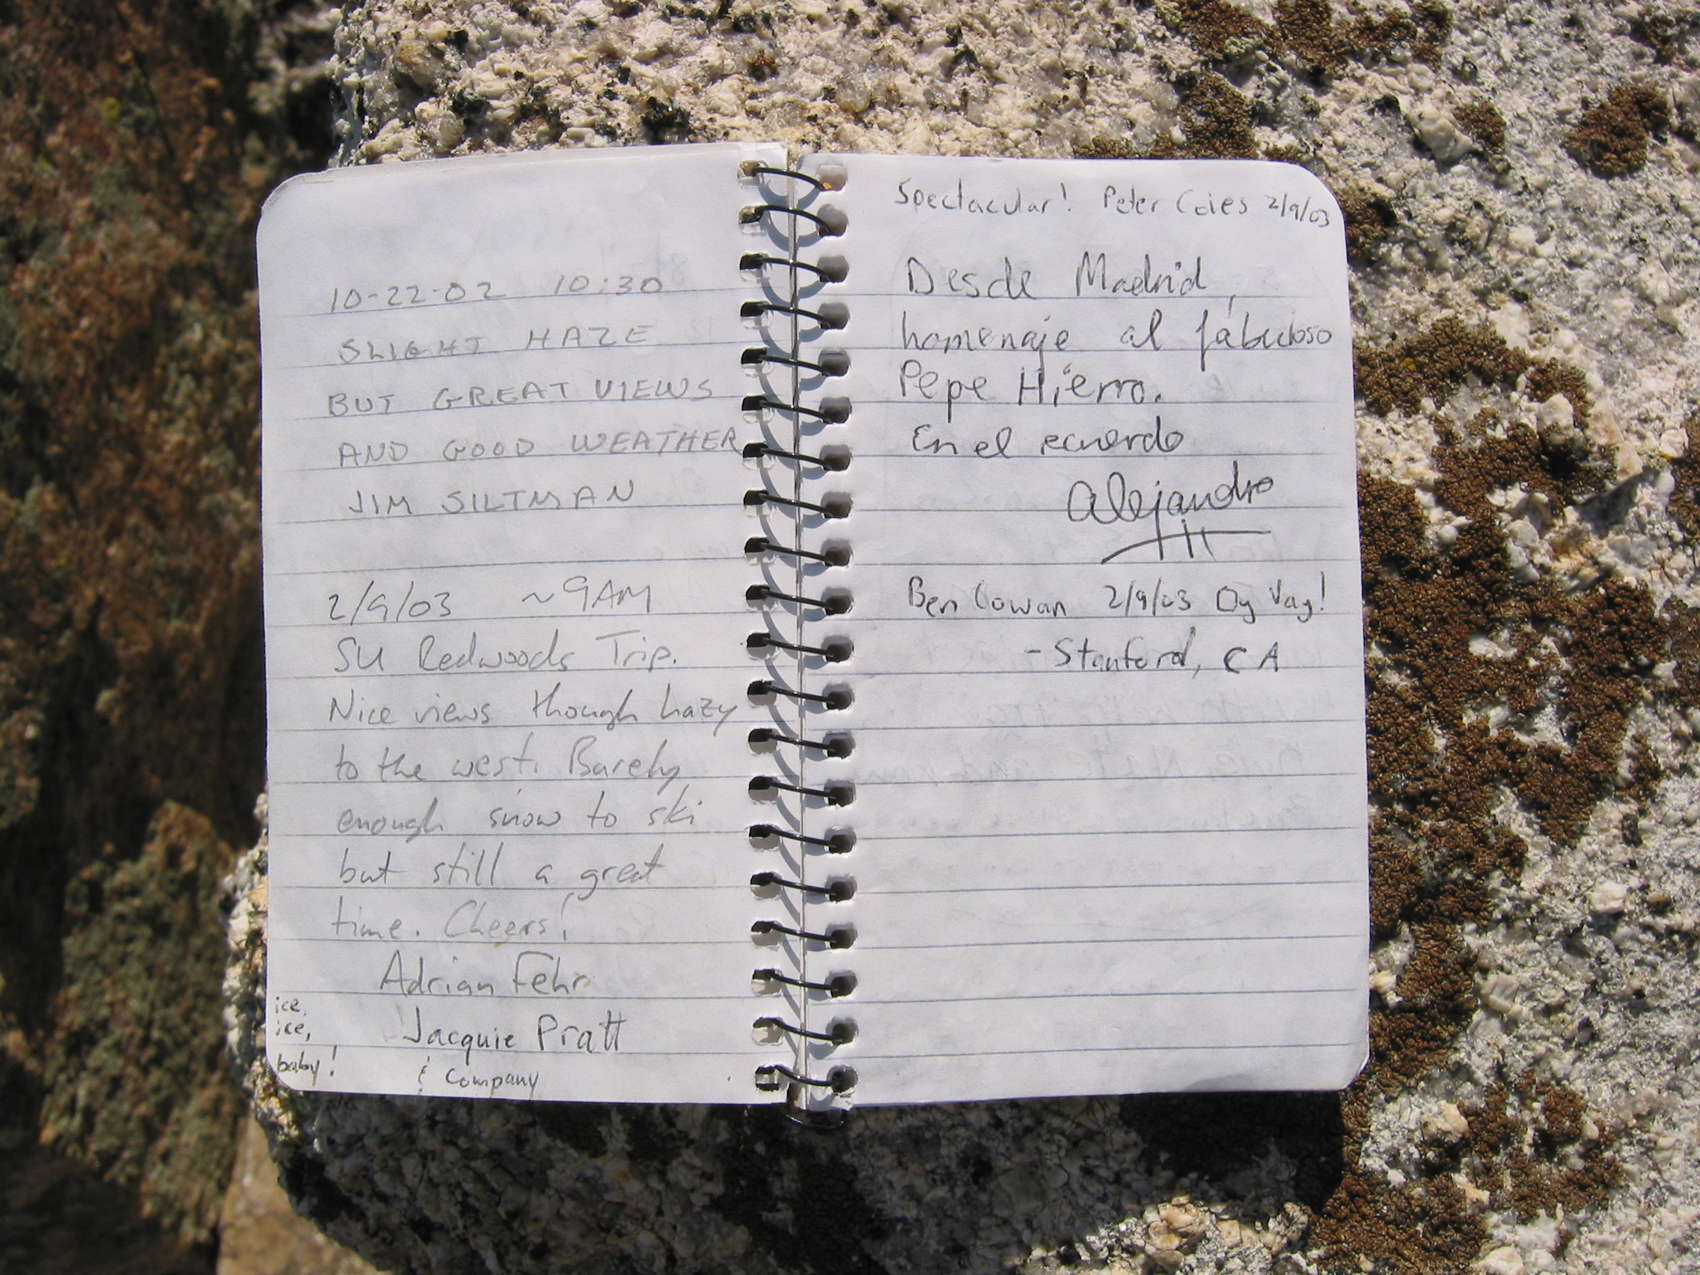 10-22-02 10:30
SLIGHT HAZE
BUT GREAT VIEWS
AND GOOD WEATHER
JIM SILTMAN
2/9/03 ~9AM
SU Redwoods Trip.
Nice views though hazy
to the west. Barely
enough snow to ski
but still a great
time. Cheers!
Adrian Fehr
Jacquie Pratt
& Company
ice,
ice,
baby!
Spectacular! Peter Coies 2/9/03
Desde Madrid,
homenaje al fabuloso
Pepe Hierro.
En el recuerdo
Alejandro
Ben Cowan 2/9/03 Oy Vay!
- Stanford, CA